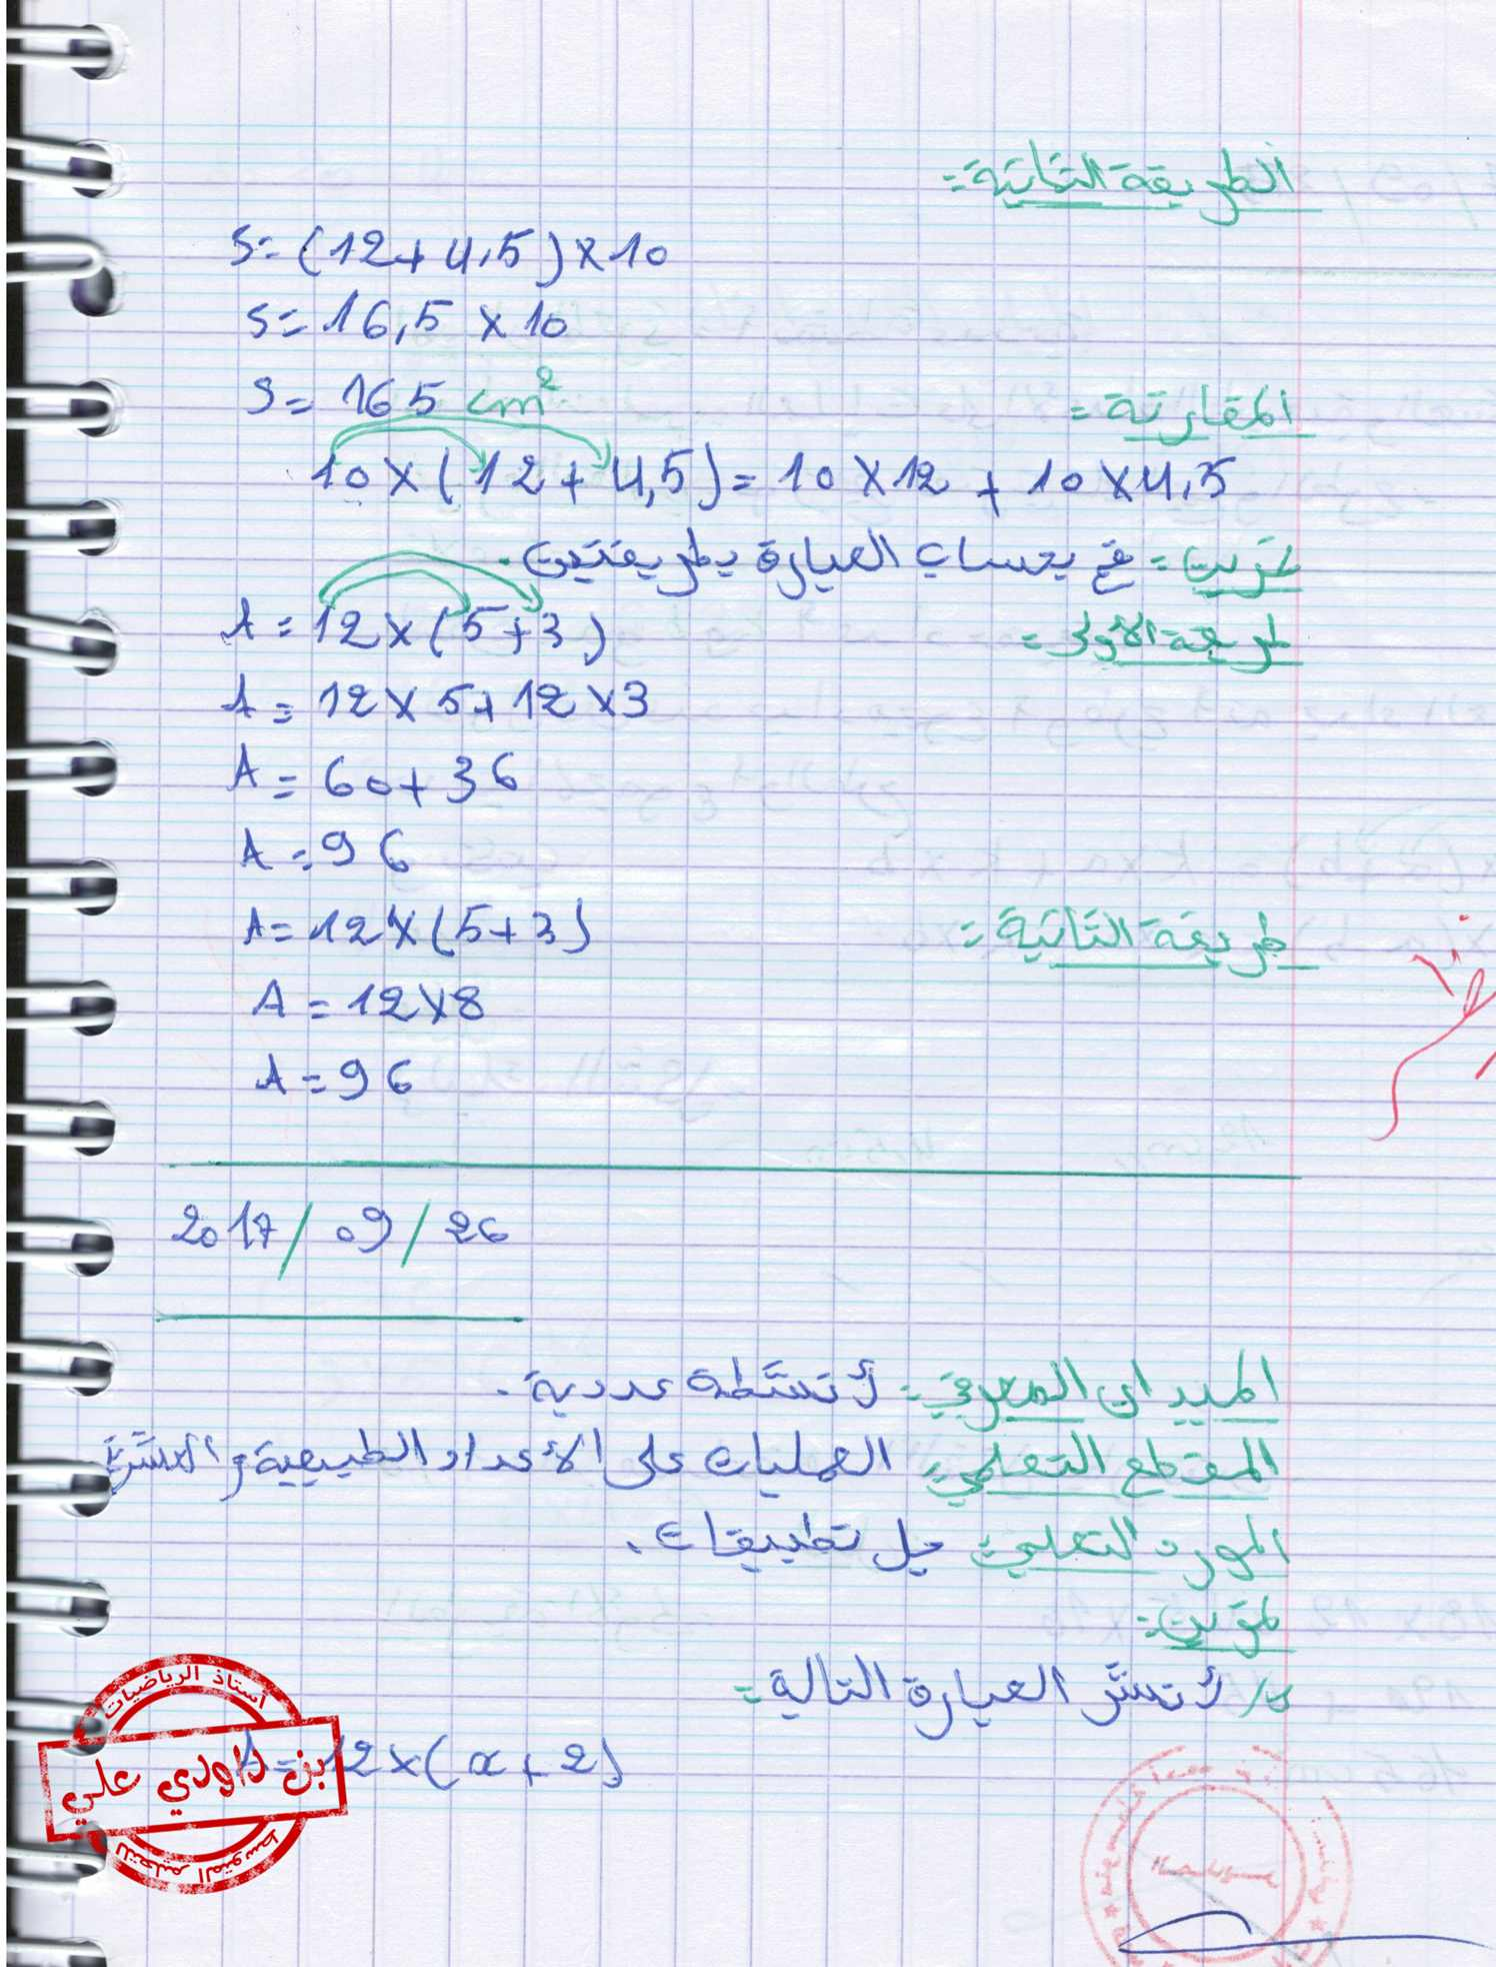 الطريقة الثانية =
S = (12 + 4,5) × 10
S = 16,5 × 10
S = 165 cm²
المقارنة =
10 × (12 + 4,5) = 10 × 12 + 10 × 4,5
تمرين = قم بحساب العبارة بطريقتين .
طريقة الأولى =
A = 12 × (5 + 3)
A = 12 × 5 + 12 × 3
A = 60 + 36
A = 96
طريقة الثانية =
A = 12 × (5 + 3)
A = 12 × 8
A = 96
2017 / 09 / 26
الميدان المعرفي = أنشطة عددية .
المقطع التعلمي = العمليات على الأعداد الطبيعية و العشرية
المورد التعلمي = حل تطبيقات .
تمرين =
أنشر العبارة التالية =
A = 12 × (a + 2)
أستاذ الرياضيات
بن داودي علي
للتعليم المتوسط